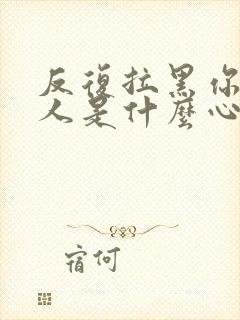 反復拉黑你
人是什麼心
宿何